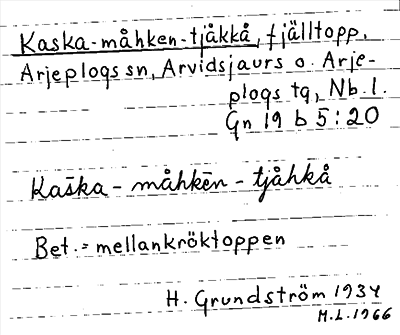 Kaska-måhken-tjåkkå, fjälltopp.
Arjeplogs sn, Arvidsjaurs o. Arje-
plogs tg, Nb. l.
Gn 19 b 5:20
Kaska - måhkēn - tjåhkå
Bet. = mellankröktoppen
H. Grundström 1934
H.L. 1966